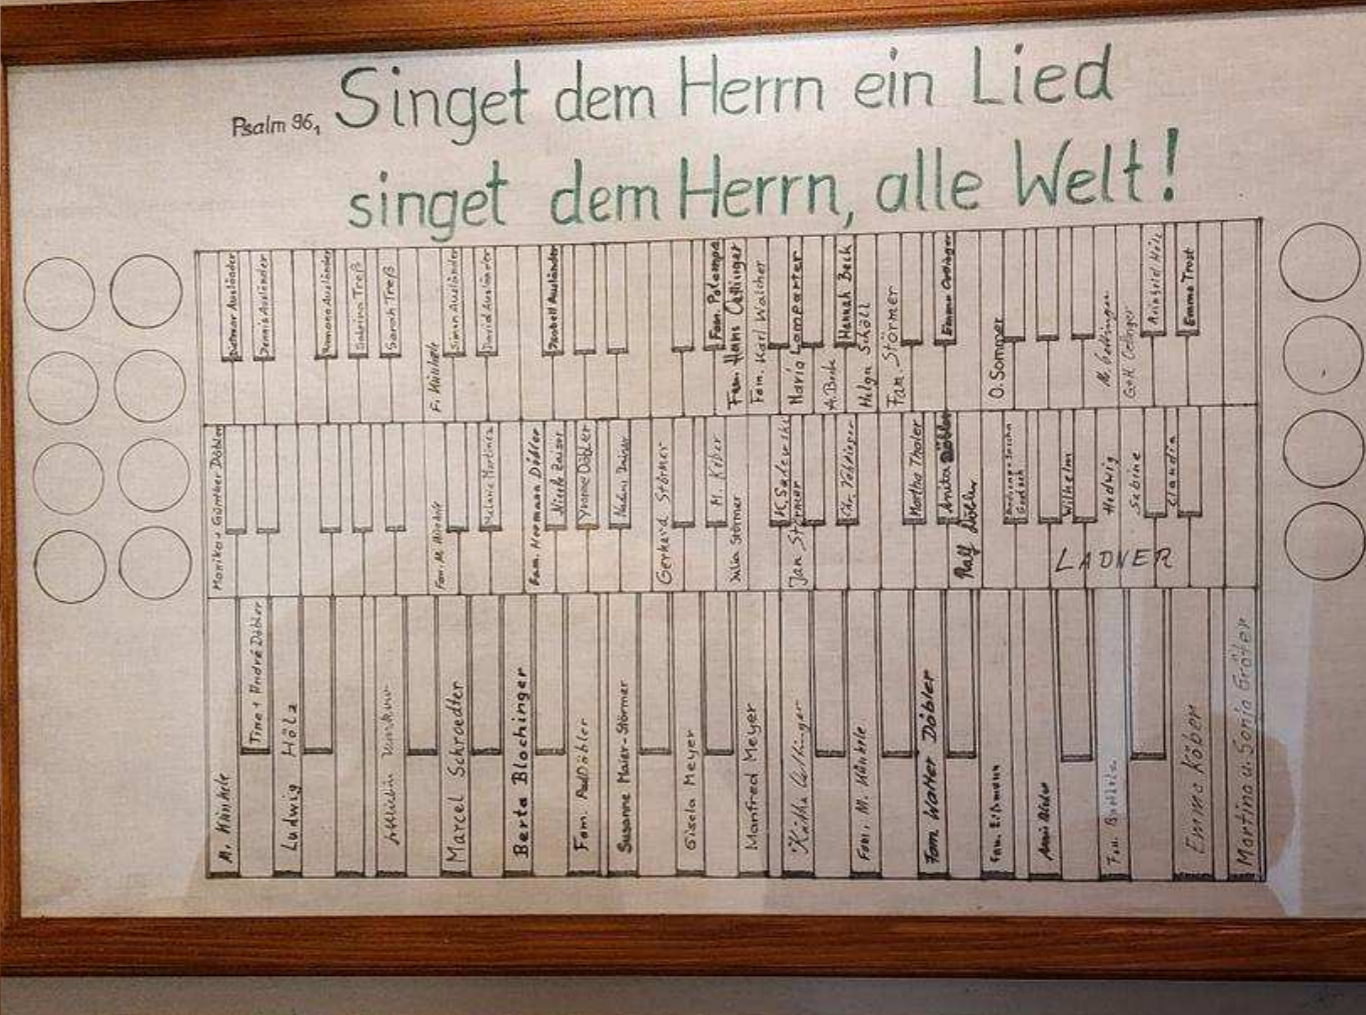 Psalm 96,1 Singet dem Herrn ein Lied
singet dem Herrn, alle Welt!
Dietmar Ausländer
Dennis Ausländer
Ramona Ausländer
Sabrina Treß
Sarah Treß
F. Künkele
Simon Ausländer
David Ausländer
Isabell Ausländer
Fam. Polampa
Fam. Hans Oettinger
Fam. Karl Walcher
Maria Lamparter
A. Beck
Hannah Beck
Helga Schöll
Fam. Störmer
Emma Oettinger
O. Sommer
Reinhold Hölz
Emma Trost
Monika + Günther Döbler
Melanie Martinez
Fam. Hermann Döbler
Nicole Zaiser
Yvonne Döbler
Nadine Zaiser
Gerhard Störmer
M. Köber
Julia Störmer
Jan Störmer
Martha Thaler
Anita Döbler
Ralf Döbler
Wilhelm
Hedwig
Sabine
Claudia
LADNER
A. Künkele
Tina + André Döbler
Ludwig Hölz
Marcel Schroedter
Berta Blochinger
Fam. Paul Döbler
Susanne Maier-Störmer
Gisela Meyer
Manfred Meyer
Käthe Oettinger
Fam. M. Künkele
Fam. Walter Döbler
Fam. Eißmann
Emma Köber
Martina u. Sonja Gräter